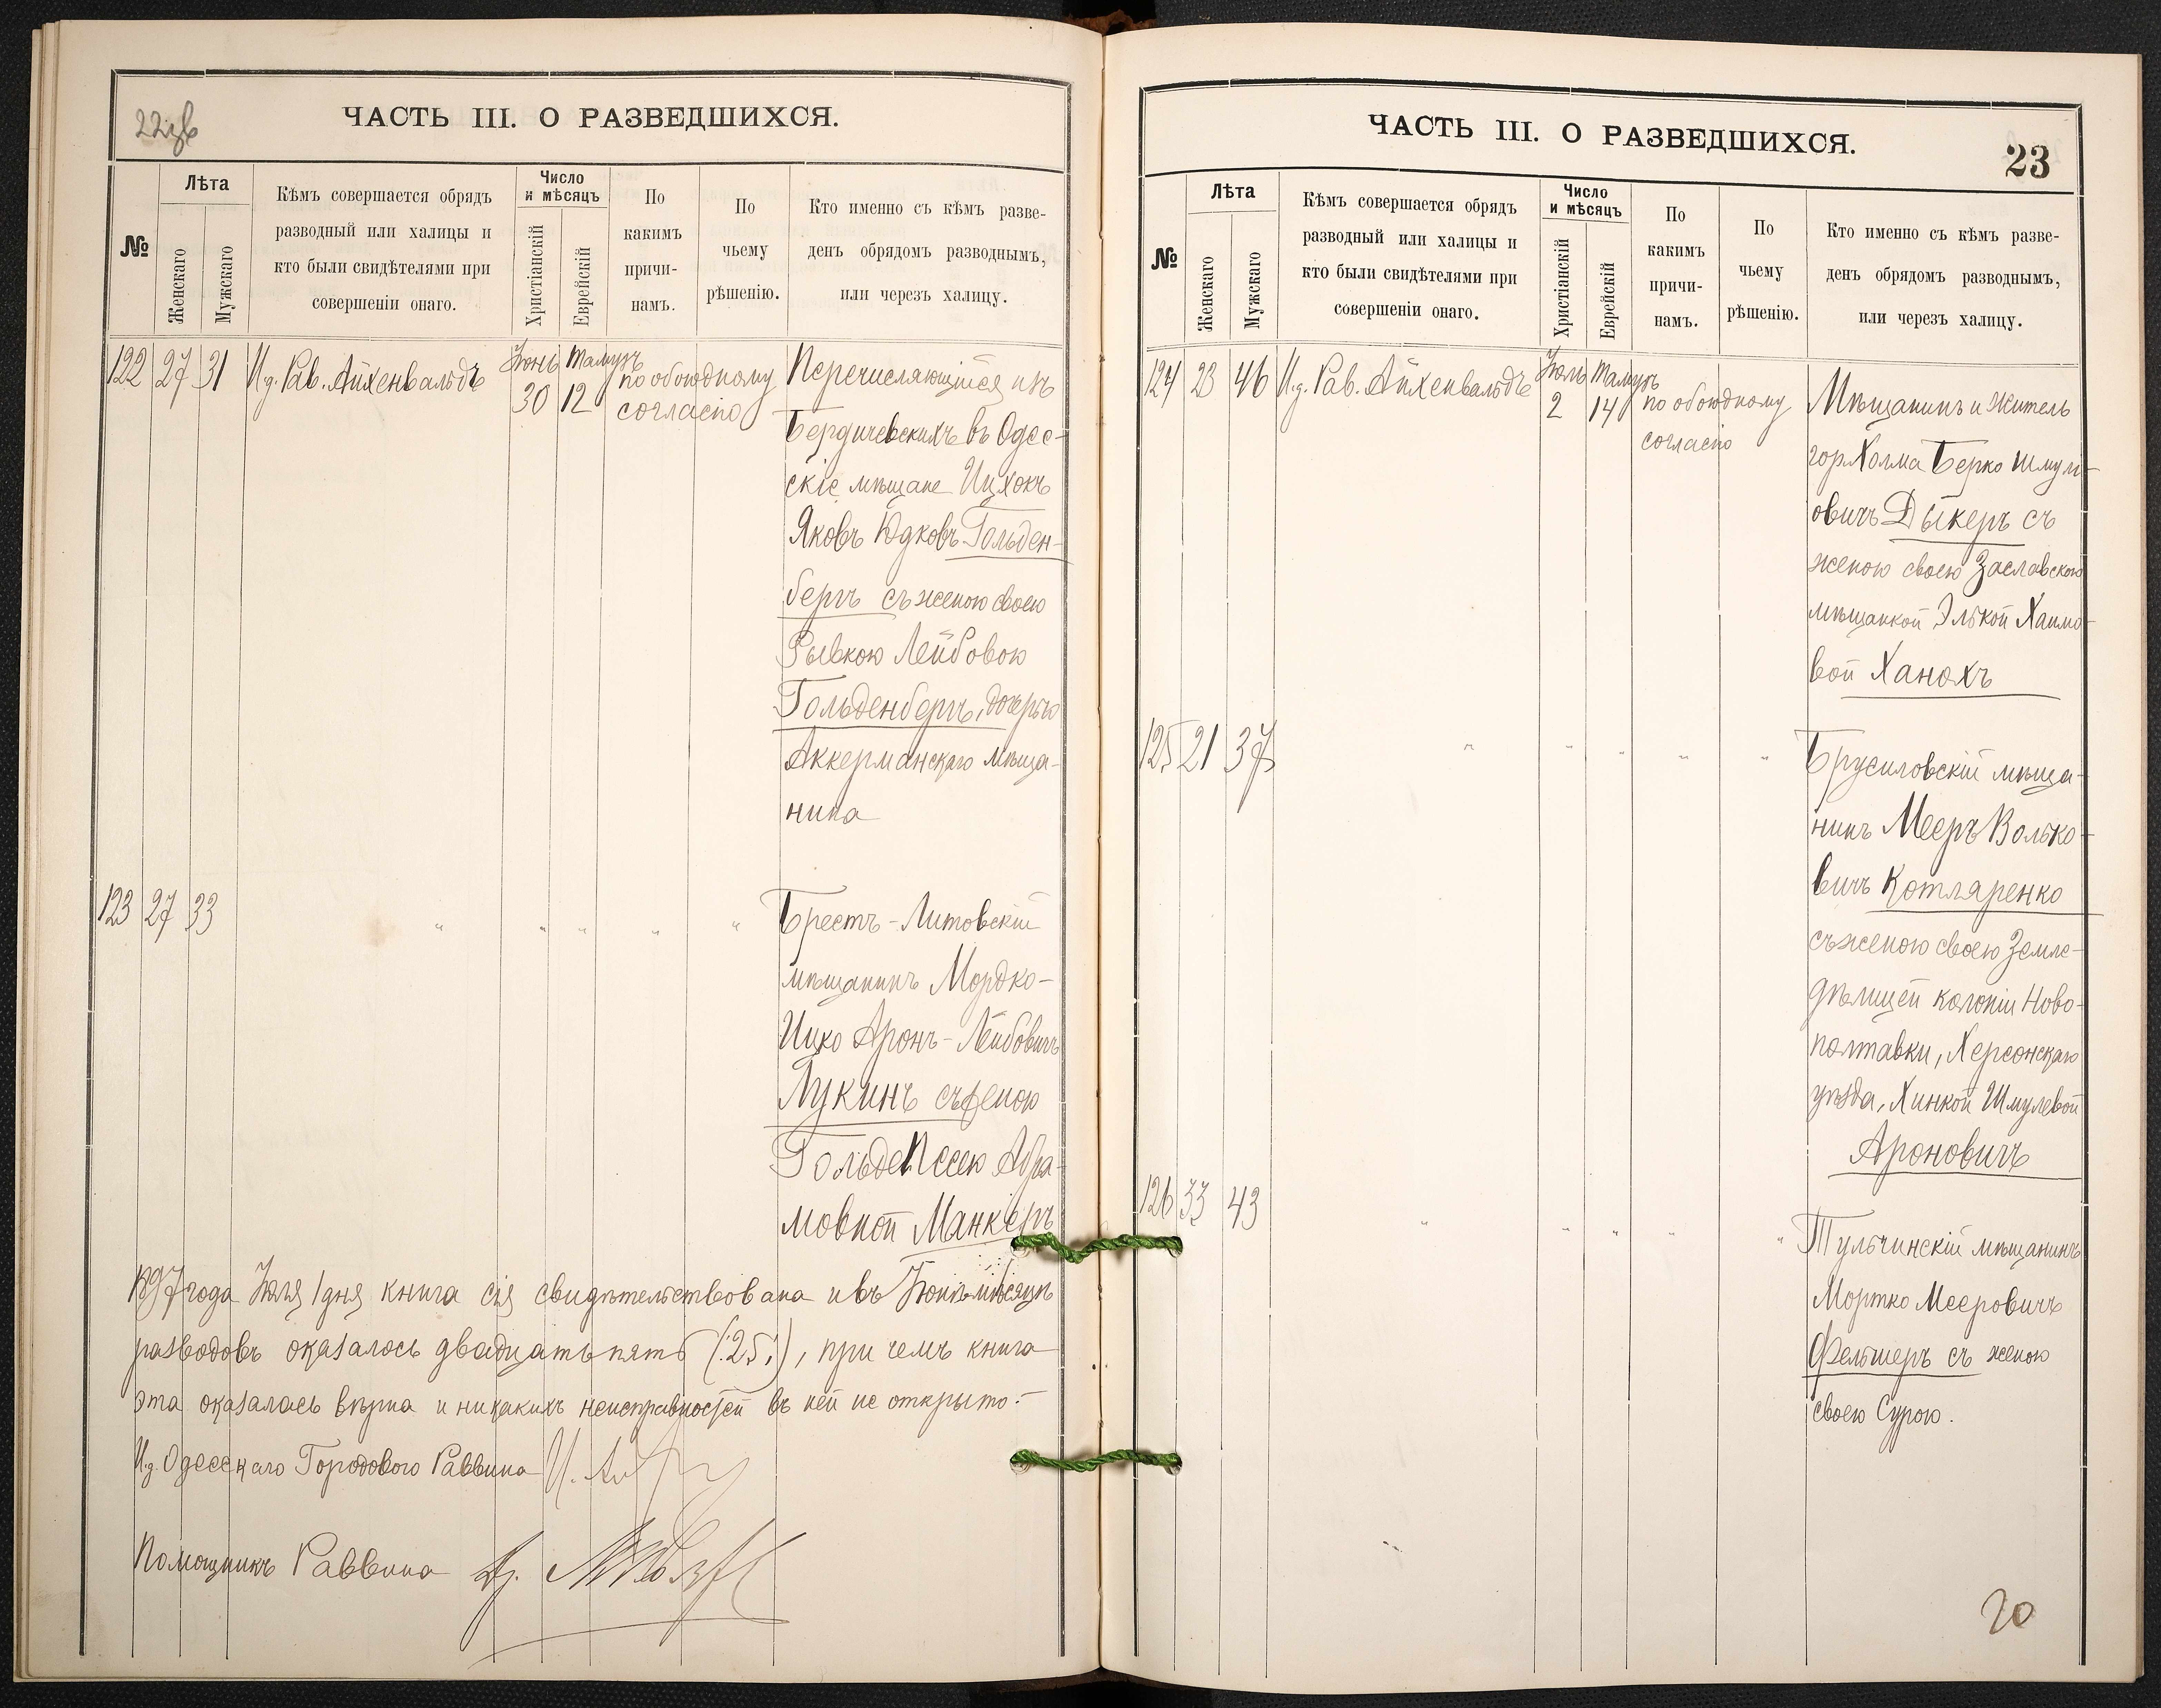 22зв
ЧАСТЬ III. О РАЗВЕДШИХСЯ.
№
Лѣта
Женскаго
Мужскаго
Кѣмъ совершается обрядъ
разводный или халицы и
кто были свидѣтелями при
совершеніи онаго.
Число
и мѣсяцъ
Христіанскій
Еврейскій
По
какимъ
причи-
намъ.
По
чьему
рѣшенію.
Кто именно съ кѣмъ разве-
денъ обрядомъ разводнымъ,
или черезъ халицу.
122 27 31 И.д. Рав. Айхенвальдъ Іюнь 30 Тамузъ 12 по обоюдному
согласію
Перечисляющійся изъ
Бердичевскихъ въ Одес-
скіе мѣщане Ицхокъ
Яковъ Юдковъ Гольден-
бергъ съ женою своею
Рывкою Лейбовою
Гольденбергъ, дочерью
Аккерманскаго мѣща-
нина
123 27 33 " " " " "
Брестъ-Литовскій
мѣщанинъ Мордко-
Ицко Аронъ-Лейбовичъ
Лукинъ съ женою
Гольде Песею Абра-
мовной Манкеръ
1897 года Іюля 1 дня книга сія свидѣтельствована и въ Іюнѣ мѣсяцѣ
разводовъ оказалось двадцать пять (:25:), при чемъ книга
эта оказалась вѣрна и никакихъ неисправностей въ ней не открыто.-
И.д. Одесскаго Городового Раввина
Помощникъ Раввина
ЧАСТЬ III. О РАЗВЕДШИХСЯ.
23
№
Лѣта
Женскаго
Мужскаго
Кѣмъ совершается обрядъ
разводный или халицы и
кто были свидѣтелями при
совершеніи онаго.
Число
и мѣсяцъ
Христіанскій
Еврейскій
По
какимъ
причи-
намъ.
По
чьему
рѣшенію.
Кто именно съ кѣмъ разве-
денъ обрядомъ разводнымъ,
или черезъ халицу.
124 23 46 И.д. Рав. Айхенвальдъ Іюль 2 Тамузъ 14 по обоюдному
согласію
Мѣщанинъ и житель
гор. Холма Берко Шмул-
овичъ Дыкеръ съ
женою своею Заславскою
мѣщанкой Элькой Хаимо-
вой Ханохъ
125 21 37 " " " " "
Брусиловскій мѣща-
нинъ Мееръ Волько-
вичъ Котляренко
съ женою своею Земле-
дѣлицей колоніи Ново-
полтавки, Херсонскаго
уѣзда, Хинкой Шмулевой
Ароновичъ
126 33 43 " " " " "
Тульчинскій мѣщанинъ
Мортко Мееровичъ
Фельшеръ съ женою
своею Сурою.
20